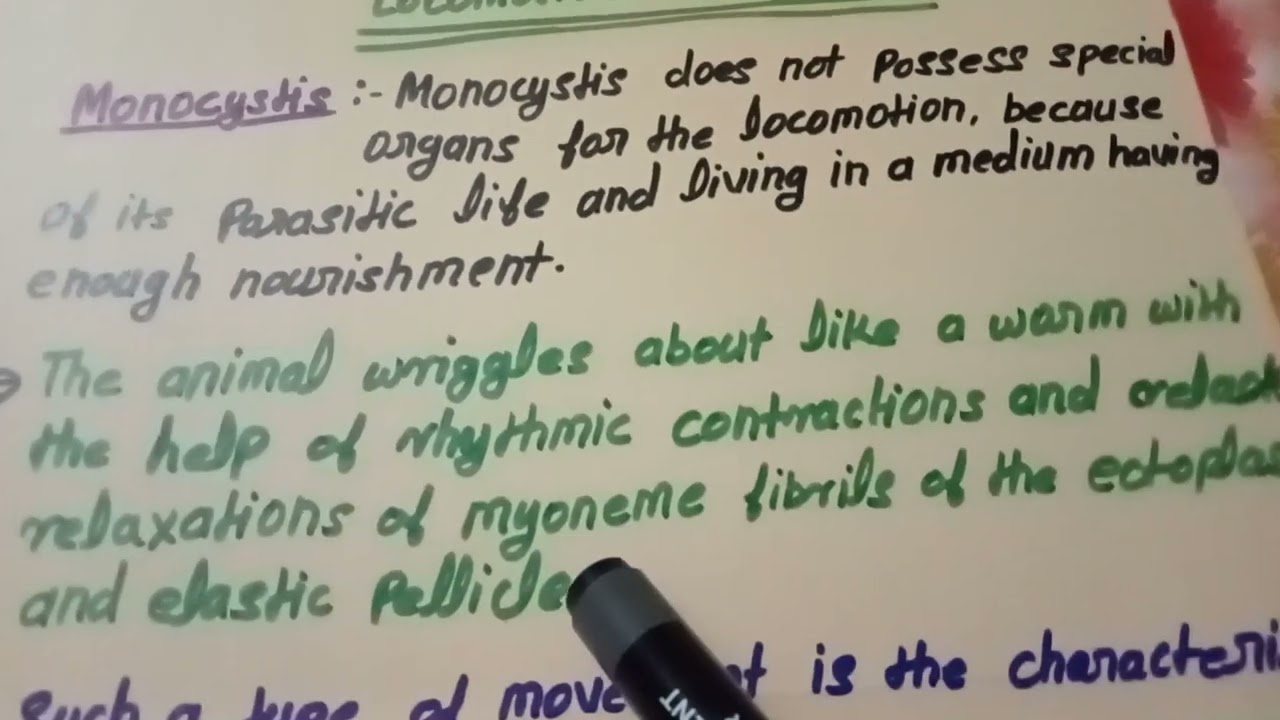 Monocystis :- Monocystis does not possess special
organs for the locomotion, because
of its Parasitic life and living in a medium having
enough nourishment.
The animal wriggles about like a warm with
the help of rhythmic contractions and
relaxations of myoneme fibrils of the
and elastic Pellicle
Such a type of is the